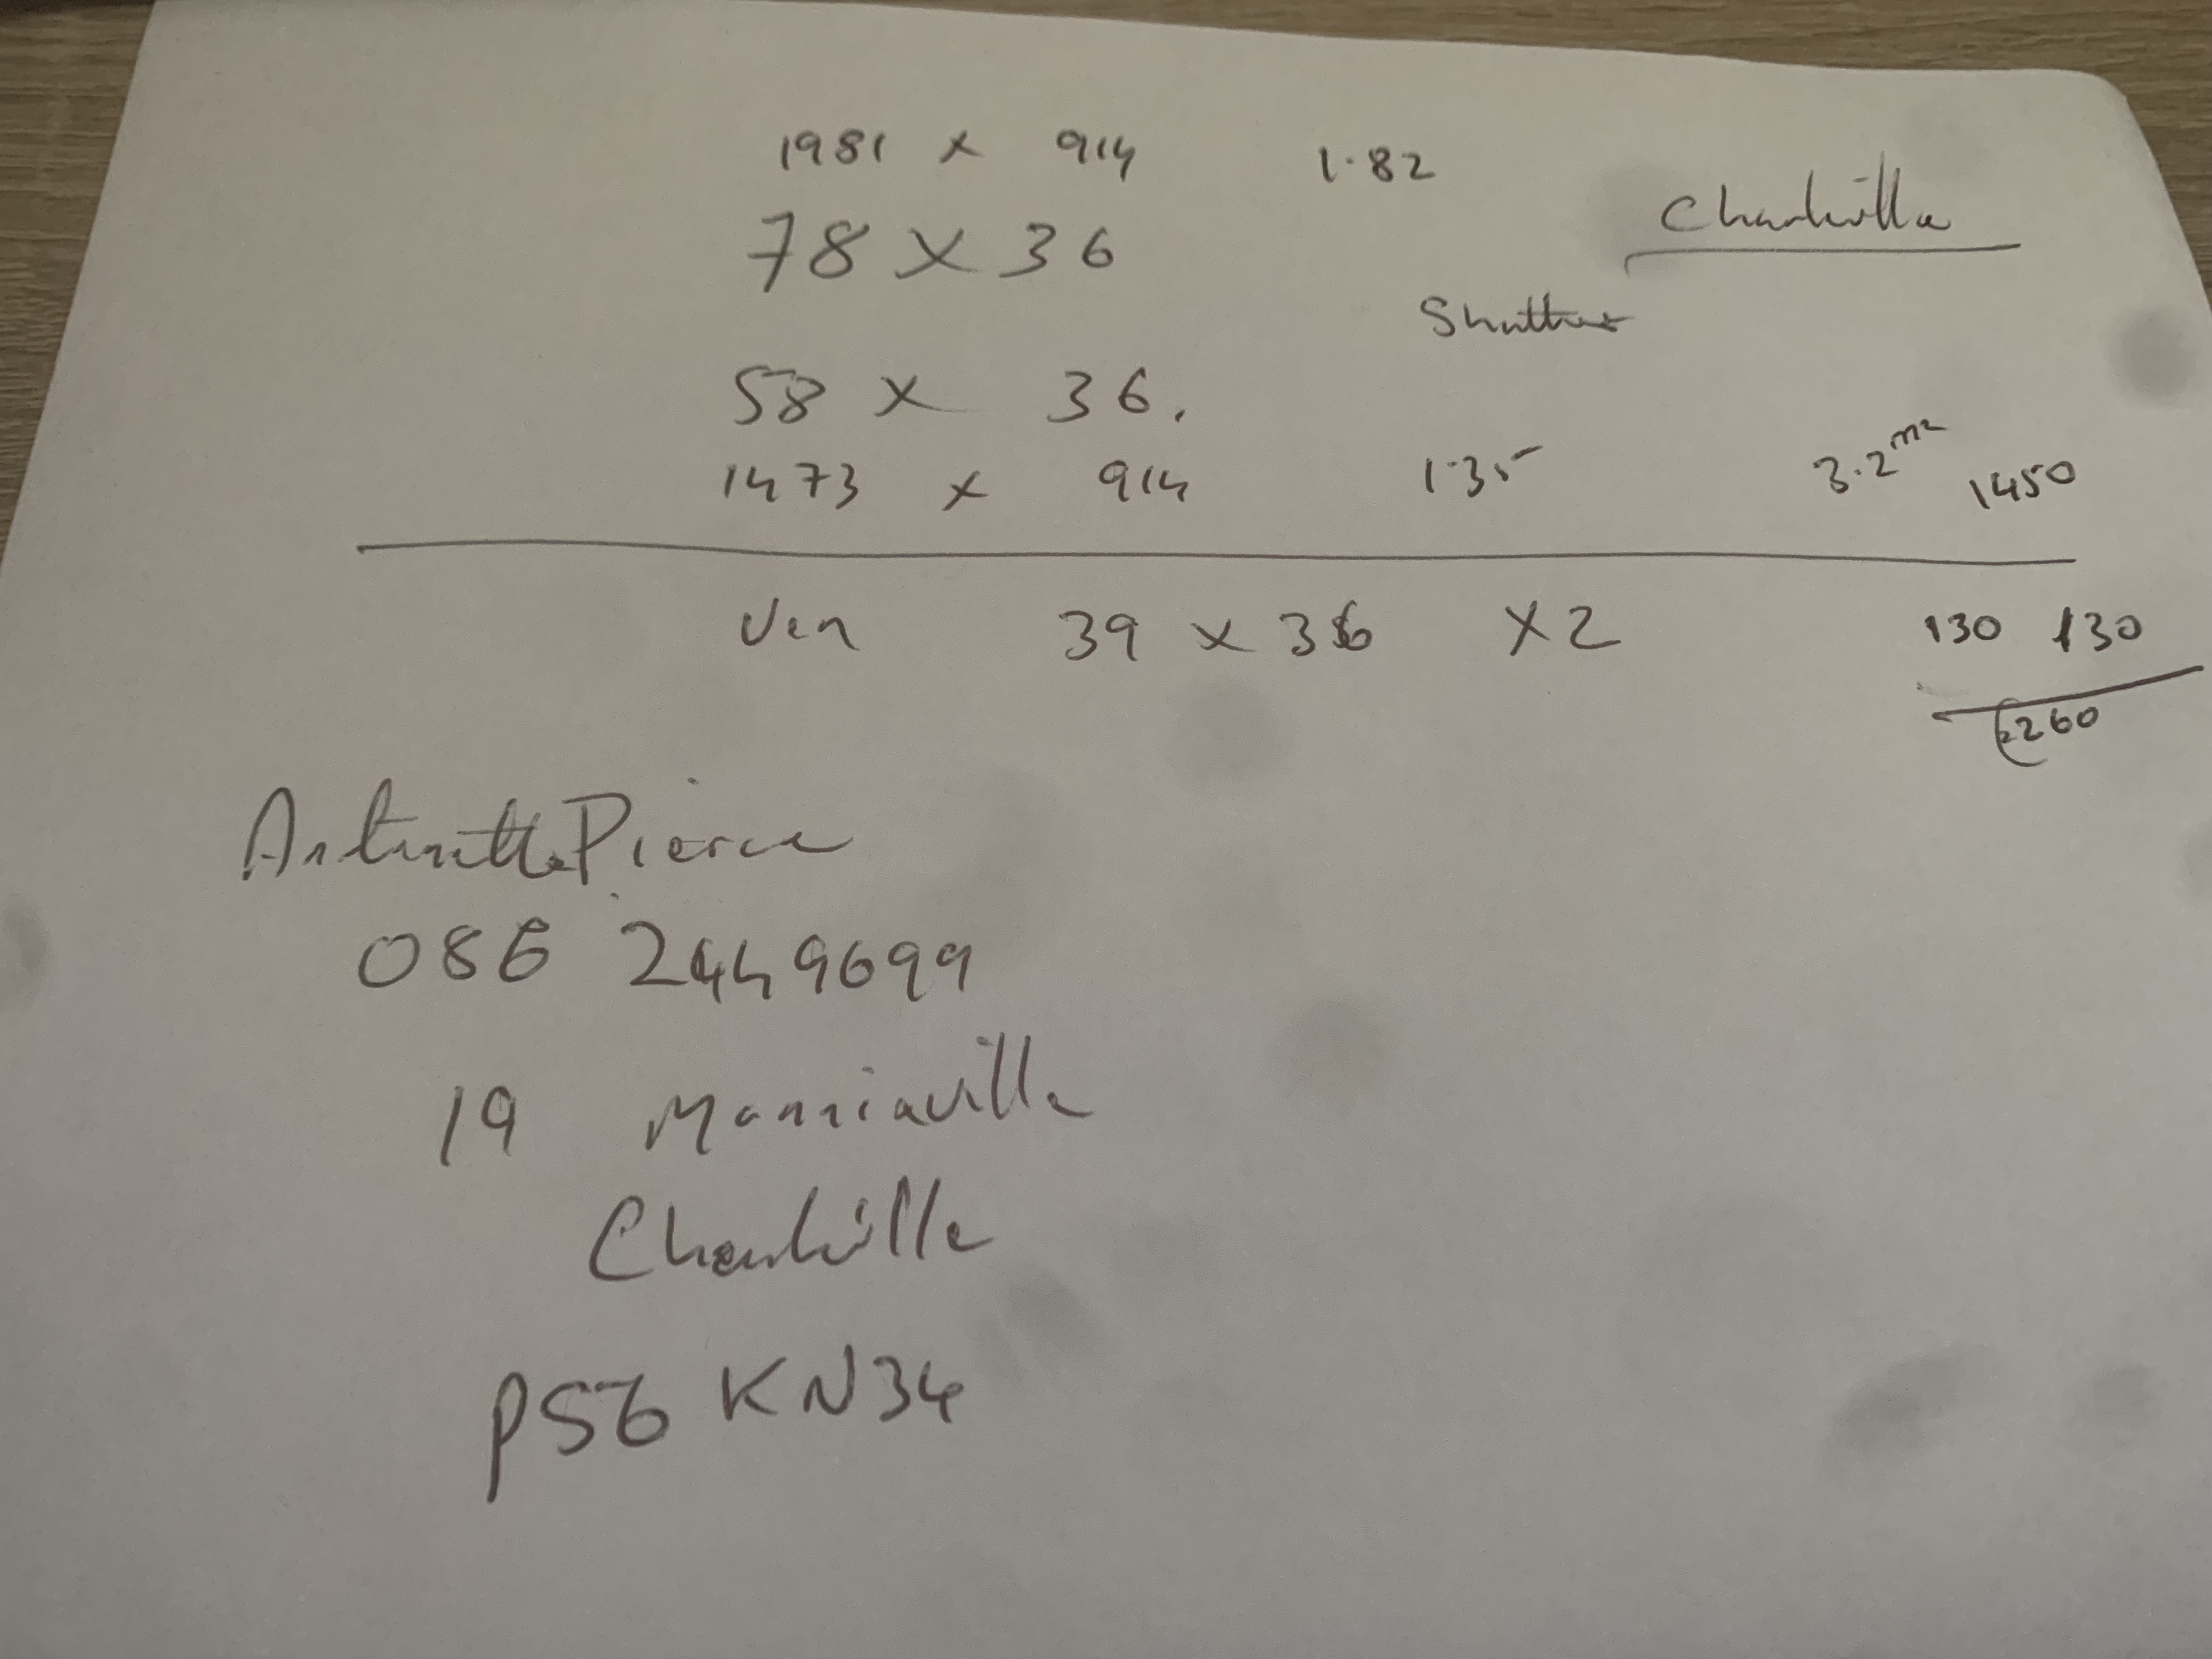 1981 x 914 1.82
Charleville
78 x 36
Shutters
58 x 36.
1473 x 914 1.35 3.2 m2 1450
Ven 39 x 36 x2 130 130
€260
Antinette Pierce
086 2449699
19
Charleville
P56 KN34